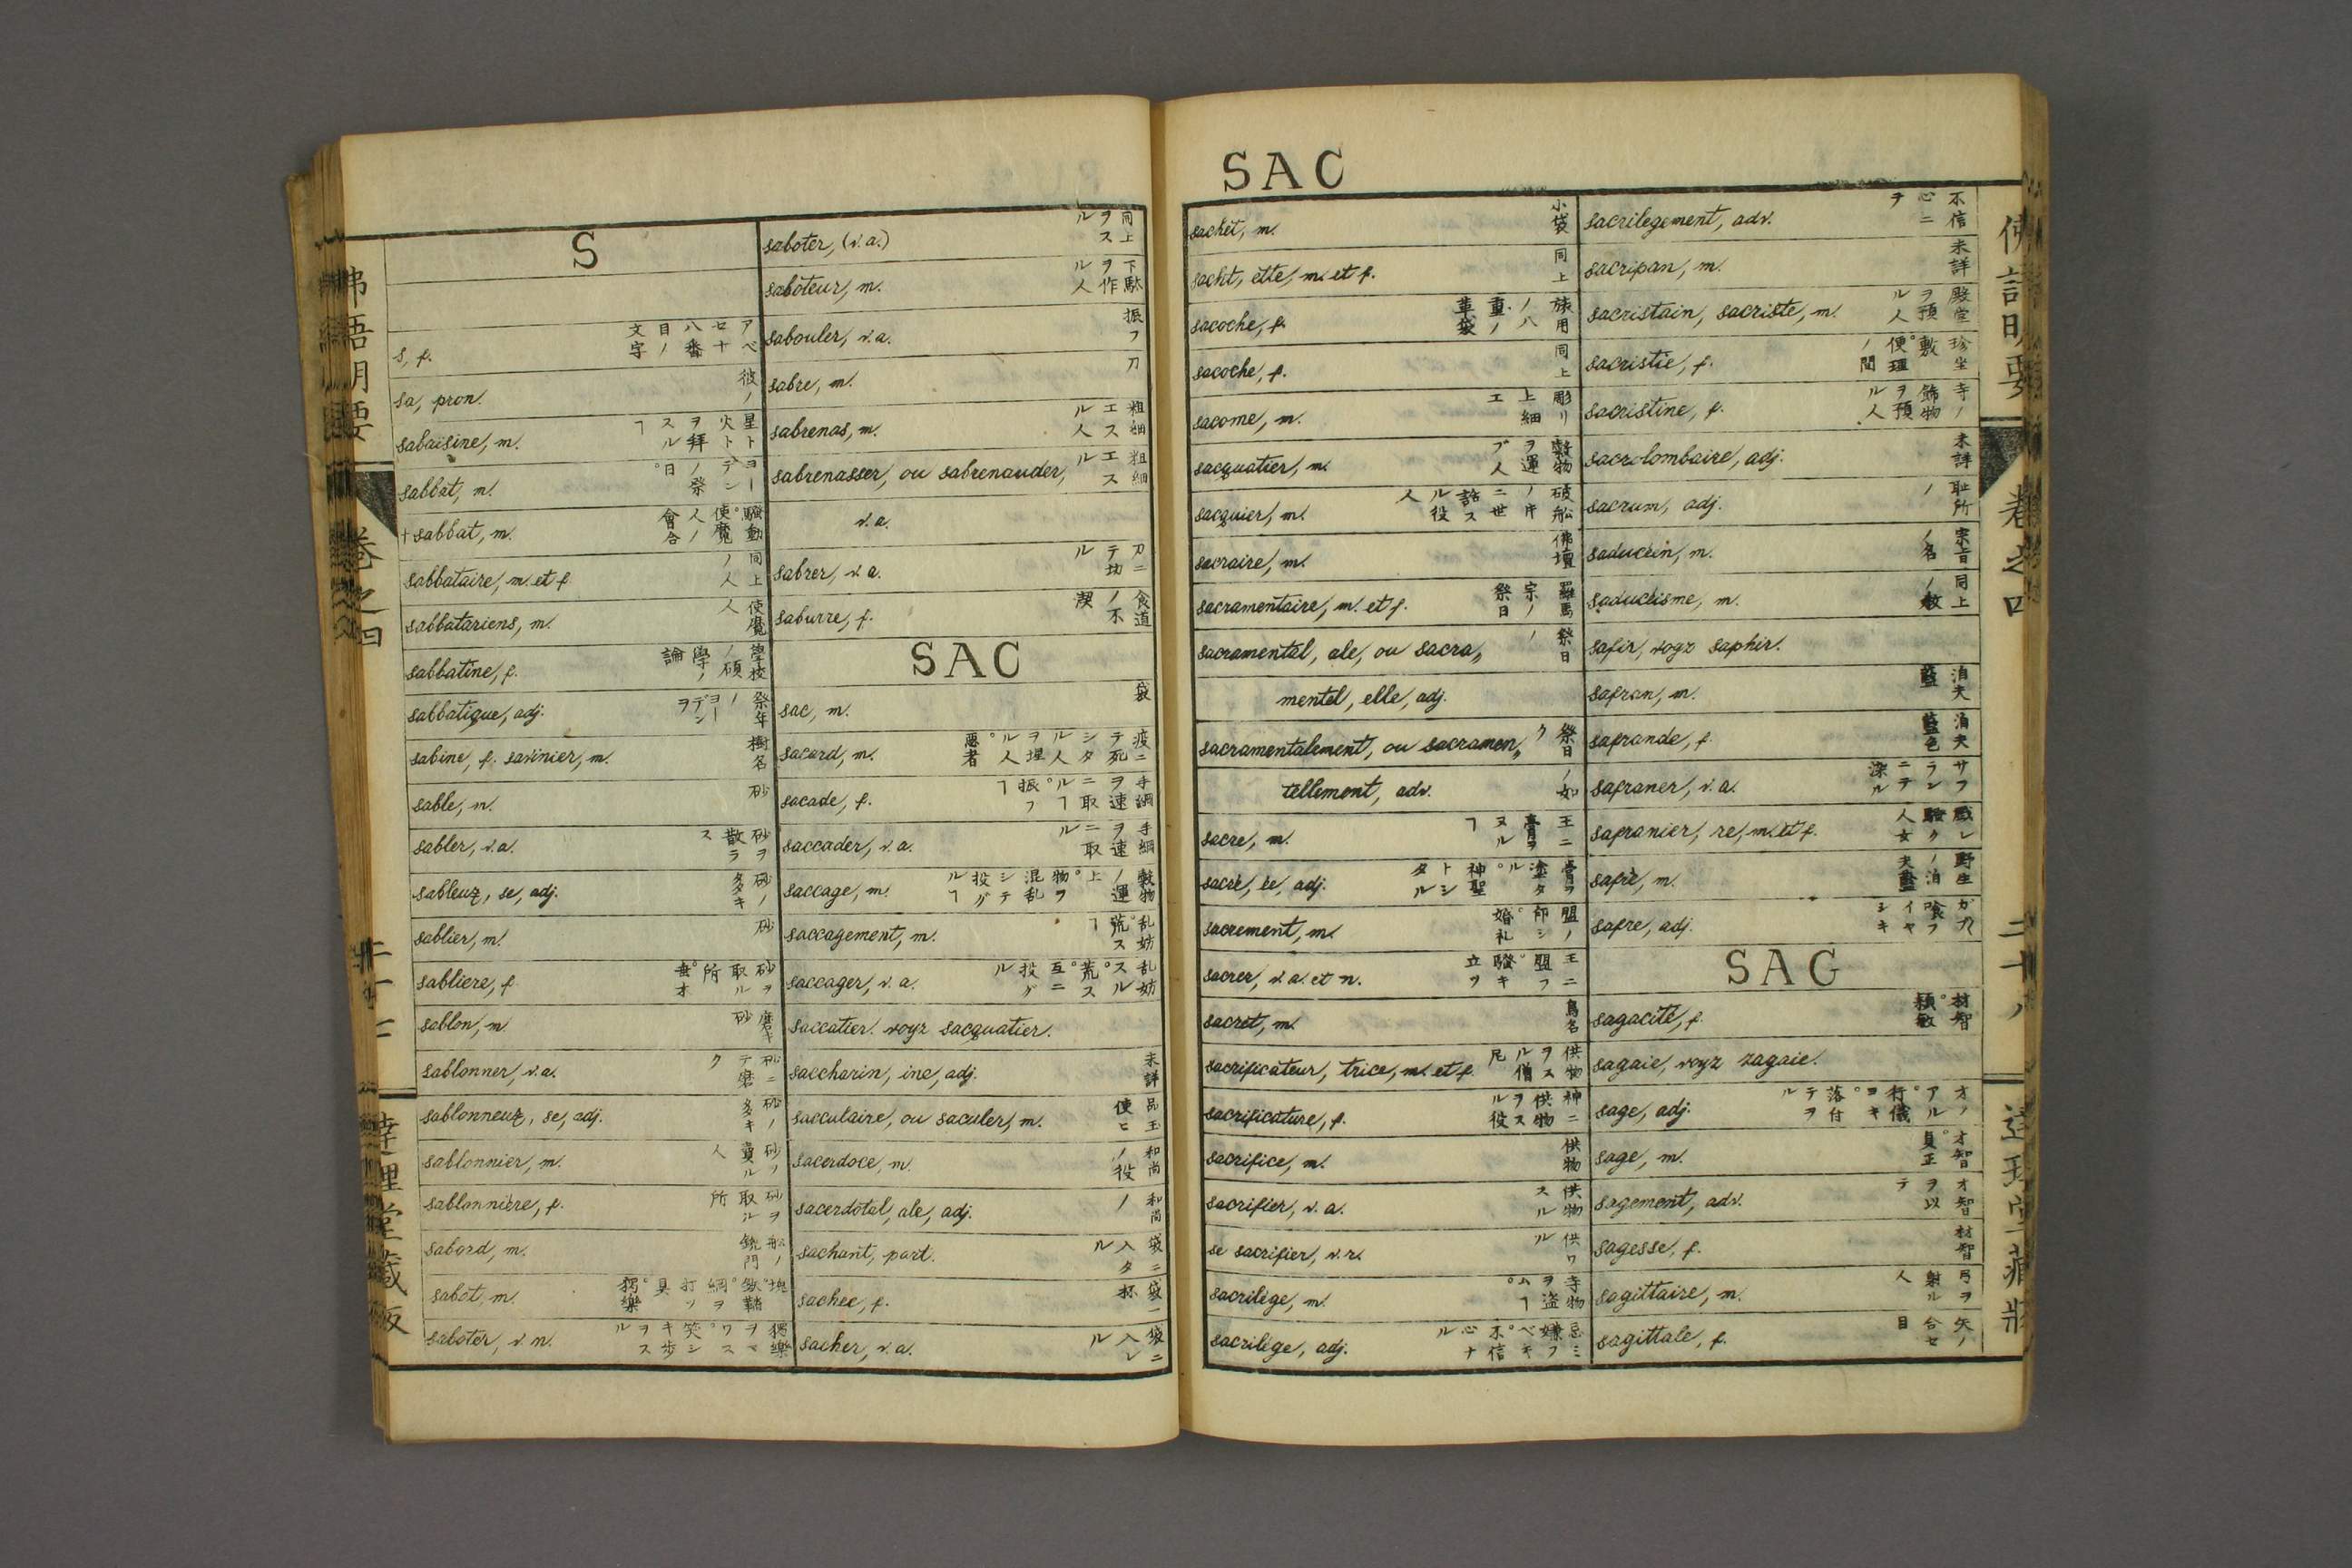 S
s, f. アベセ十八番目ノ文字
sa, pron. 彼ノ
sabaïsine, m. 星ト火トヲ拝スルヿ
sabbat, m. ヨーデンノ祭日。
+sabbat, m. 騒動。使魔人ノ會合
sabbataire, m. et f. 同上ノ人
sabbatariens, m. 使魔人
sabbatine, f. 學校ノ碩學ノ論
sabbatique, adj. 祭年ノ
sabine, f. savinier, m. 樹名
sable, m. 砂
sabler, v. a. 砂ヲ散ラス
sableuz, se, adj. 砂ノ多キ
sablier, m. 砂
sabliere, f. 砂ヲ取ル所。
sablon, m. 磨キ砂
sablonner, v. a. 砂ニテ磨ク
sablonneuz, se, adj. 砂ノ多キ
sablonnier, m. 砂ノ賣ル人
sablonnière, f. 砂ヲ取ル所
sabord, m. 船ノ銃門
sabot, m.
saboter, v. n.
saboter, (v. a.) 同上ヲスル
saboteur, m. 下駄ヲ作ル人
sabouler, v. a. 振フ
sabre, m. 刀
sabrenas, m. 粗細エスル人
sabrenasser, ou sabrenauder, 粗細エスル
v. a.
sabrer, v. a. 刀ニテ切ル
saburre, f. 食道ノ不潔
SAC
sac, m. 袋
sacard, m. 疫ニテ死シタル人ヲ埋ル人。悪者
sacade, f. 手綱ヲ速ニ取ルヿ。振フヿ
saccader, v. a. 手綱ヲ速ニ取ル
saccage, m.
saccagement, m. 乱妨。荒スヿ
saccager, v. a. 乱妨スル。荒ス。互ニ投グル
saccatier. voyz sacquatier.
saccharin, ine, adj. 未詳
sacculaire, ou saculer, m. 品玉使ヒ
sacerdoce, m. 和尚ノ役
sacerdotal, ale, adj. 和尚ノ
sachant, part. 袋ニ入タル
sachee, f. 袋一杯
sacher, v. a. 袋ニ入レル
弗語明要
巻之四
達理堂藏版
SAC
sachet, m. 小袋
sacht, ette, m. et f. 同上
sacoche, f. 旅用ノ八重ノ革袋
sacoche, f. 同上
sacome, m. 彫リ上細エ
sacquatier, m. 穀物ヲ運ブ人
sacquier, m.
sacraire, m. 佛壇
sacramentaire, m. et f. 羅馬宗ノ祭日
sacramental, ale, ou sacra〃 祭日ノ
mentel, elle, adj.
sacramentalement, ou sacramen〃 祭日ノ如ク
tellement, adv.
sacre, m. 王ニ膏ヲヌルヿ
sacré, ée, adj. 膏ヲ塗タル。神聖トシタル
sacrement, m. 盟ノ印シ。婚礼
sacrer, v. a. et n. 王ニ盟フ。騒キ立ツ
sacret, m. 鳥名
sacrificateur, trice, m. et f. 供物ヲスル僧尼
sacrificature, f. 神ニ供物ヲスル役
sacrifice, m. 供物
sacrifier, v. a. 供物スル
se sacrifier, v. r. 供ワル
sacrilége, m. 寺物ヲ盗ムヿ。
sacrilége, adj. 忌ミ嫌フベキ。不信心ナル
sacrilegement, adv. 不信心ニテ
sacripan, m. 未詳
sacristain, sacriste, m. 殿堂ヲ預ル人
sacristie, f.
sacristine, f. 寺ノ錺物ヲ預ル人
sacrolombaire, adj. 未詳
sacrum, adj. 耻所ノ
saducéen, m. 宗旨ノ名
saducéisme, m. 同上ノ教
safir, voyz saphir.
safran, m. 洎夫藍
safrande, f. 洎夫藍色
safraner, v. a. サフランニテ染ル
safranier, re, m. et f.
safre, m. 野生ノ洎夫藍
safre, adj.
SAG
sagacité, f. 材智。穎敏
sagaie, voyz zagaie.
sage, adj. オノアル。行儀ヨキ。落付テヲル
sage, m. オ智。貞正
sagement, adv. オ智ヲ以テ
sagesse, f. 材智
sagittaire, m. 弓ヲ射ル人
sagittale, f. 矢ノ合セ目
佛語明要
巻之四
二十八
達理堂藏版